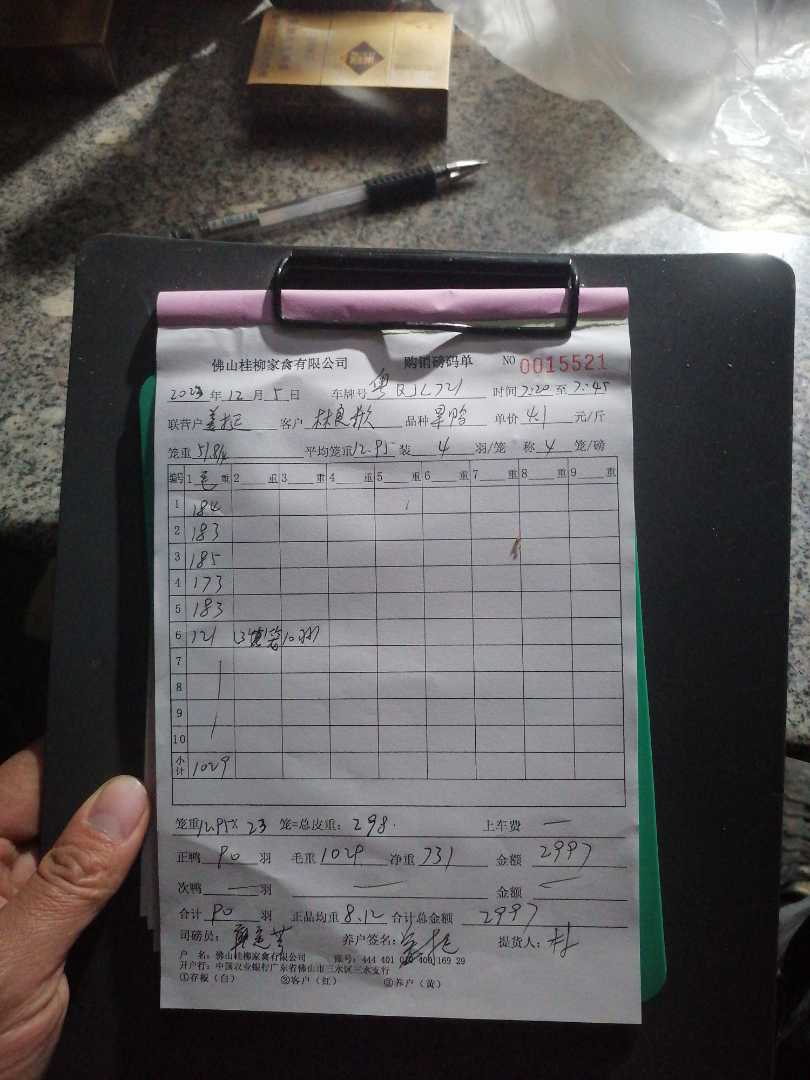 佛山桂柳家禽有限公司 购销磅码单 NO 0015521
2023年12月5日 车牌号 粤 时间7:20至7:45
联营户 客户 林良 品种 单价 4.1 元/斤
笼重 51.8/4 平均笼重12.95 装 4 羽/笼 称 4 笼/磅
编号 1 重 2 重 3 重 4 重 5 重 6 重 7 重 8 重 9 重
1 184
2 183
3 185
4 173
5 183
6 121 13 装10羽
7
8
9
10
小计 1029
笼重12.95× 23 笼=总皮重: 298. 上车费 —
正鸭 90 羽 毛重 1029 净重 731 金额 2997
次鸭 — 羽 — 金额 —
合计 90 羽 正品均重 8.12 合计总金额 2997
司磅员: 养户签名: 提货人:
户 名: 佛山桂柳家禽有限公司 账号: 444 401 169 29
开户行: 中国农业银行广东省佛山市三水区三水支行
①存板(白) ②客户(红) ③养户(黄)